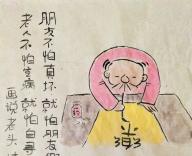 朋友不怕真坏就怕朋友假
老人不怕生病就怕自寻
画说老头